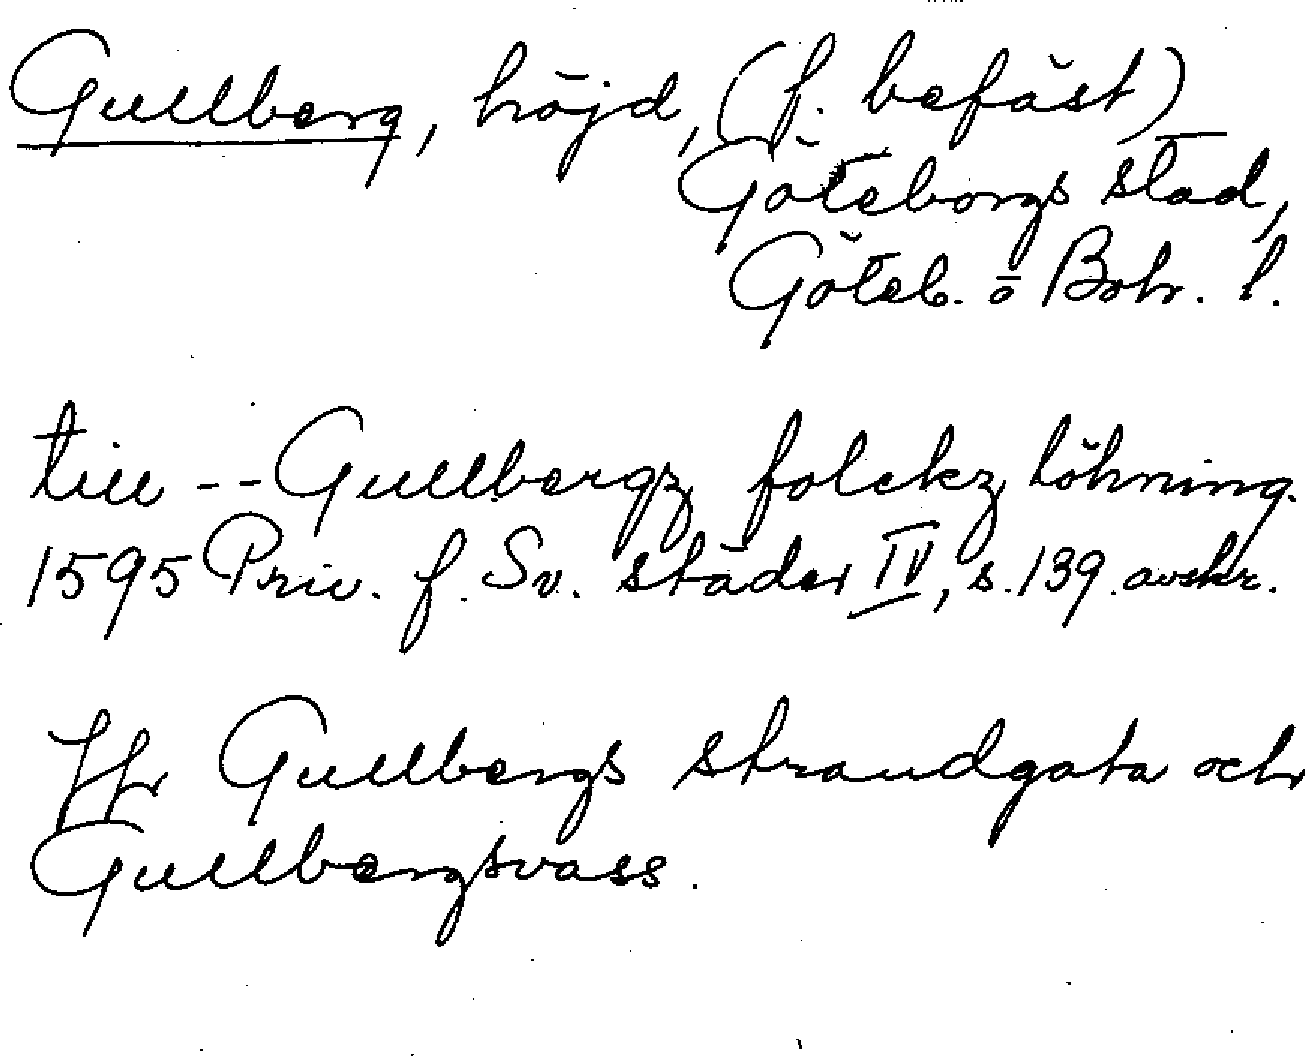 Gullberg, höjd, (f. befäst)
Göteborgs stad,
Göteb. o Boh. l.
till -- Gullbergz folckz löhning.
1595 Priv. f. Sv. städer IV, s. 139. avskr.
Jfr Gullbergs strandgata och
Gullbergsvass.